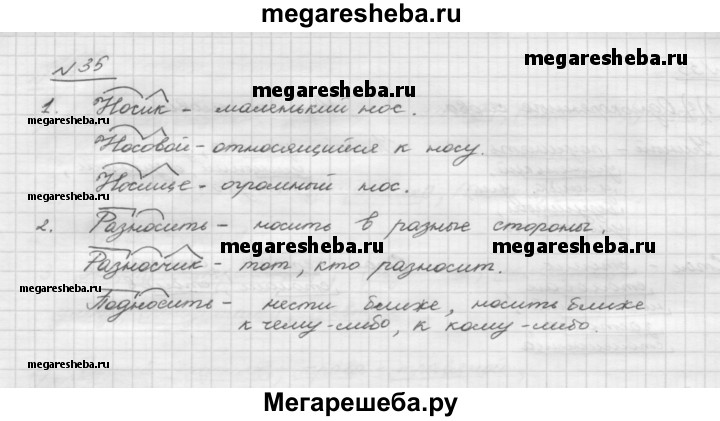 megaresheba.ru
№35
megaresheba.ru
1. Носик - маленький нос.
megaresheba.ru
megaresheba.ru
Носовой - относящийся к носу.
Носище - огромный нос.
megaresheba.ru
2. Разносить - носить в разные стороны.
megaresheba.ru
megaresheba.ru
Разносчик - тот, кто разносит.
megaresheba.ru
Подносить - нести ближе, носить ближе
к чему-либо, к кому-либо.
megaresheba.ru
Мегарешеба.ру